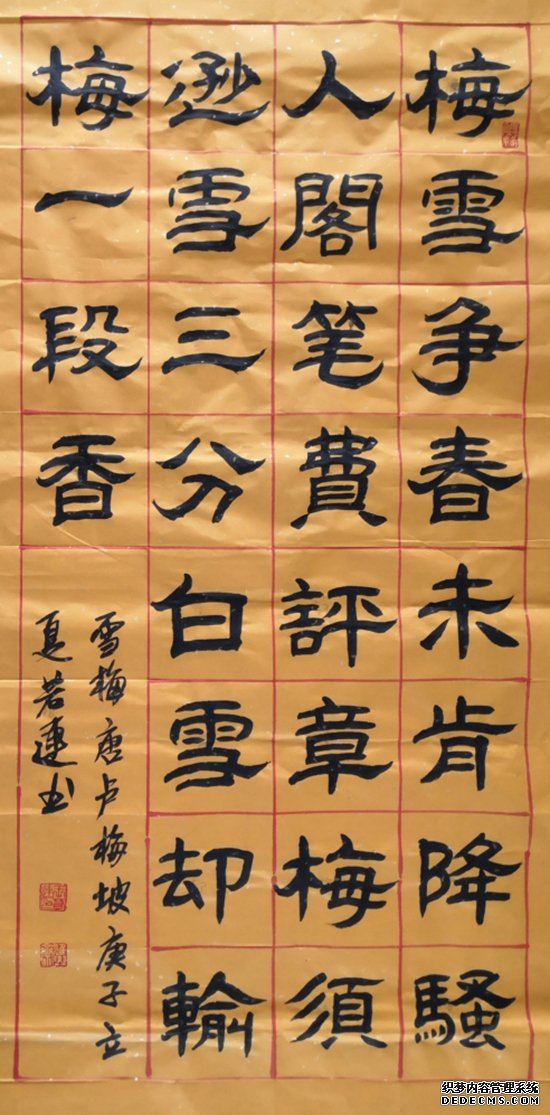 梅雪争春未肯降騷
人閣笔費評章梅須
逊雪三分白雪却輸
梅一段香
雪梅唐卢梅坡庚子立
夏若連书
织梦内容管理系统
DEDECMS.COM